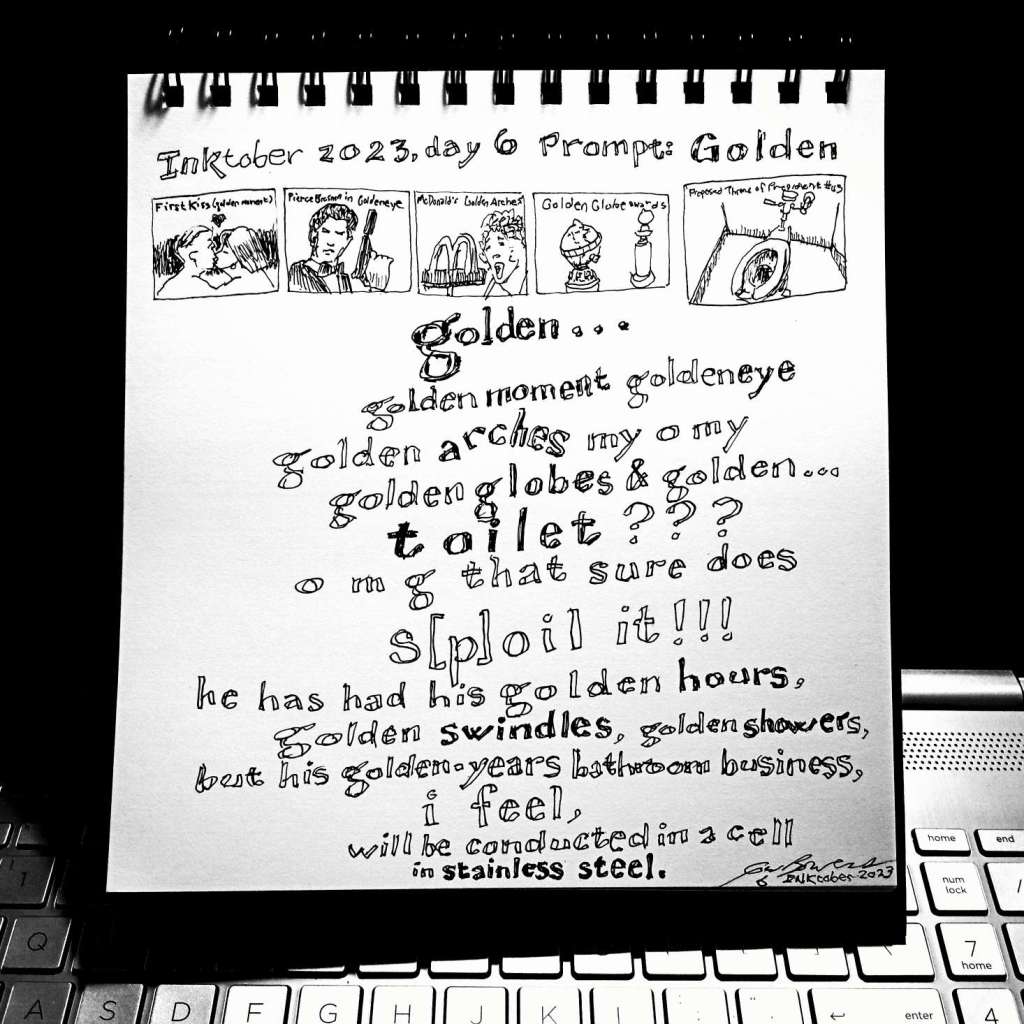 Inktober 2023, day 6 Prompt: Golden
First Kiss (golden moment)
Pierce Brosnan in Goldeneye
McDonald's Golden Arches
Golden Globe awards
Proposed Throne of President #45
golden...
golden moment goldeneye
golden arches my o my
golden globes & golden...
toilet ???
o m g that sure does
s[p]oil it!!!
he has had his golden hours,
golden swindles, golden showers,
but his golden-years bathroom business,
i feel,
will be conducted in a cell
in stainless steel.
Inktober 2023
home
end
num lock
1
/
Q
7
home
A
S
D
F
G
H
J
K
L
:
;
"
'
enter
4